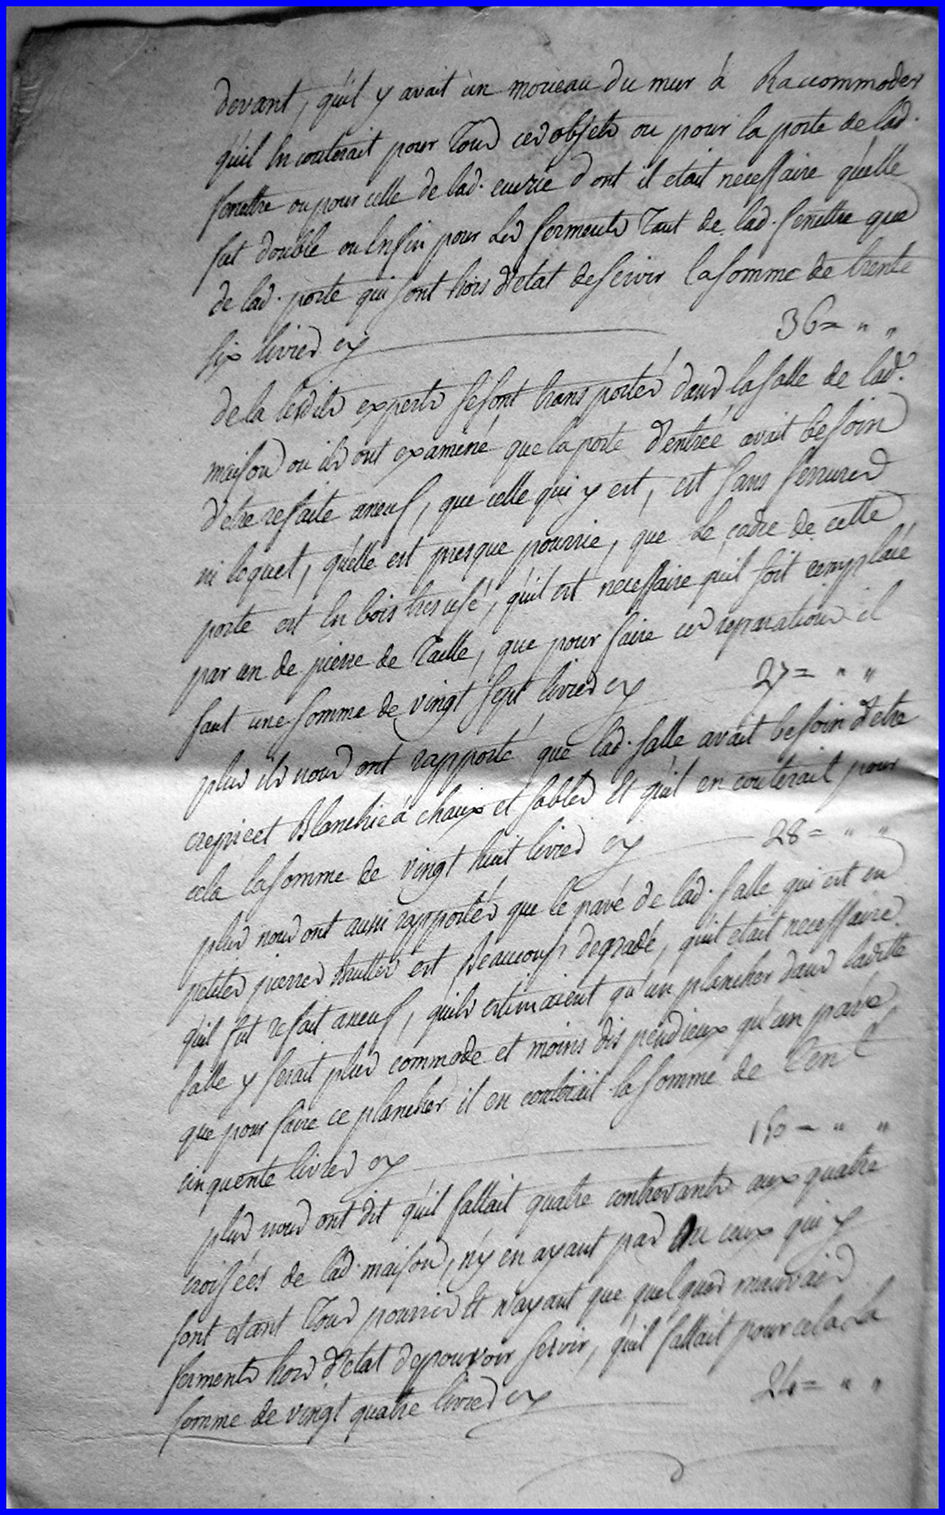 devant, qu'il y avait un morceau du mur à Raccommoder
qu'il En couterait pour Tous ces objets ou pour la porte de lad.
fenêtre ou pour celle de lad. ecurie dont il etait necessaire qu'elle
fut double ou Enfin pour Les ferments Tant de lad. fenêtre que
de lad. porte qui sont hors d'etat de servir la somme de trente
six livres cy 36 = " "
de la lesdits experts se sont transportés dans la salle de lad.
maison ou ils ont examiné que la porte d'entrée avait besoin
d'etre refaite aneuf, que celle qui y est, est sans serrures
ni loquet, qu'elle est presque pourrie, que Le cadre de cette
porte est En bois tres usé, qu'il est necessaire qu'il soit remplacé
par un de pierre de Taille, que pour faire ces reparations il
faut une somme de vingt sept livres cy 27 = " "
plus ils nous ont rapporté que lad. salle avait besoin d'etre
crepie et Blanchie à chaux et sables Et qu'il en couterait pour
cela la somme de vingt huit livres cy 28 = " "
plus nous ont aussi rapportés que le pavé de lad. salle qui est en
petites pierres Brutes est Beaucoup degradé, qu'il etait necessaire
qu'il fut refait aneuf, qu'ils estimaient qu'un plancher dans laditte
salle y serait plus commode et moins dispendieux qu'un pavé,
que pour faire ce plancher il en couterait la somme de Cent
cinquente livres cy 150 = " "
plus nous ont dit qu'il fallait quatre contrevants aux quatre
croisées de lad. maison, n'y en ayant pas ou ceux qui y
sont etant Tous pourris Et n'ayant que quelques mauvais
ferments hors d'etat de pouvoir servir, qu'il fallait pour cela La
somme de vingt quatre livres cy 24 = " "